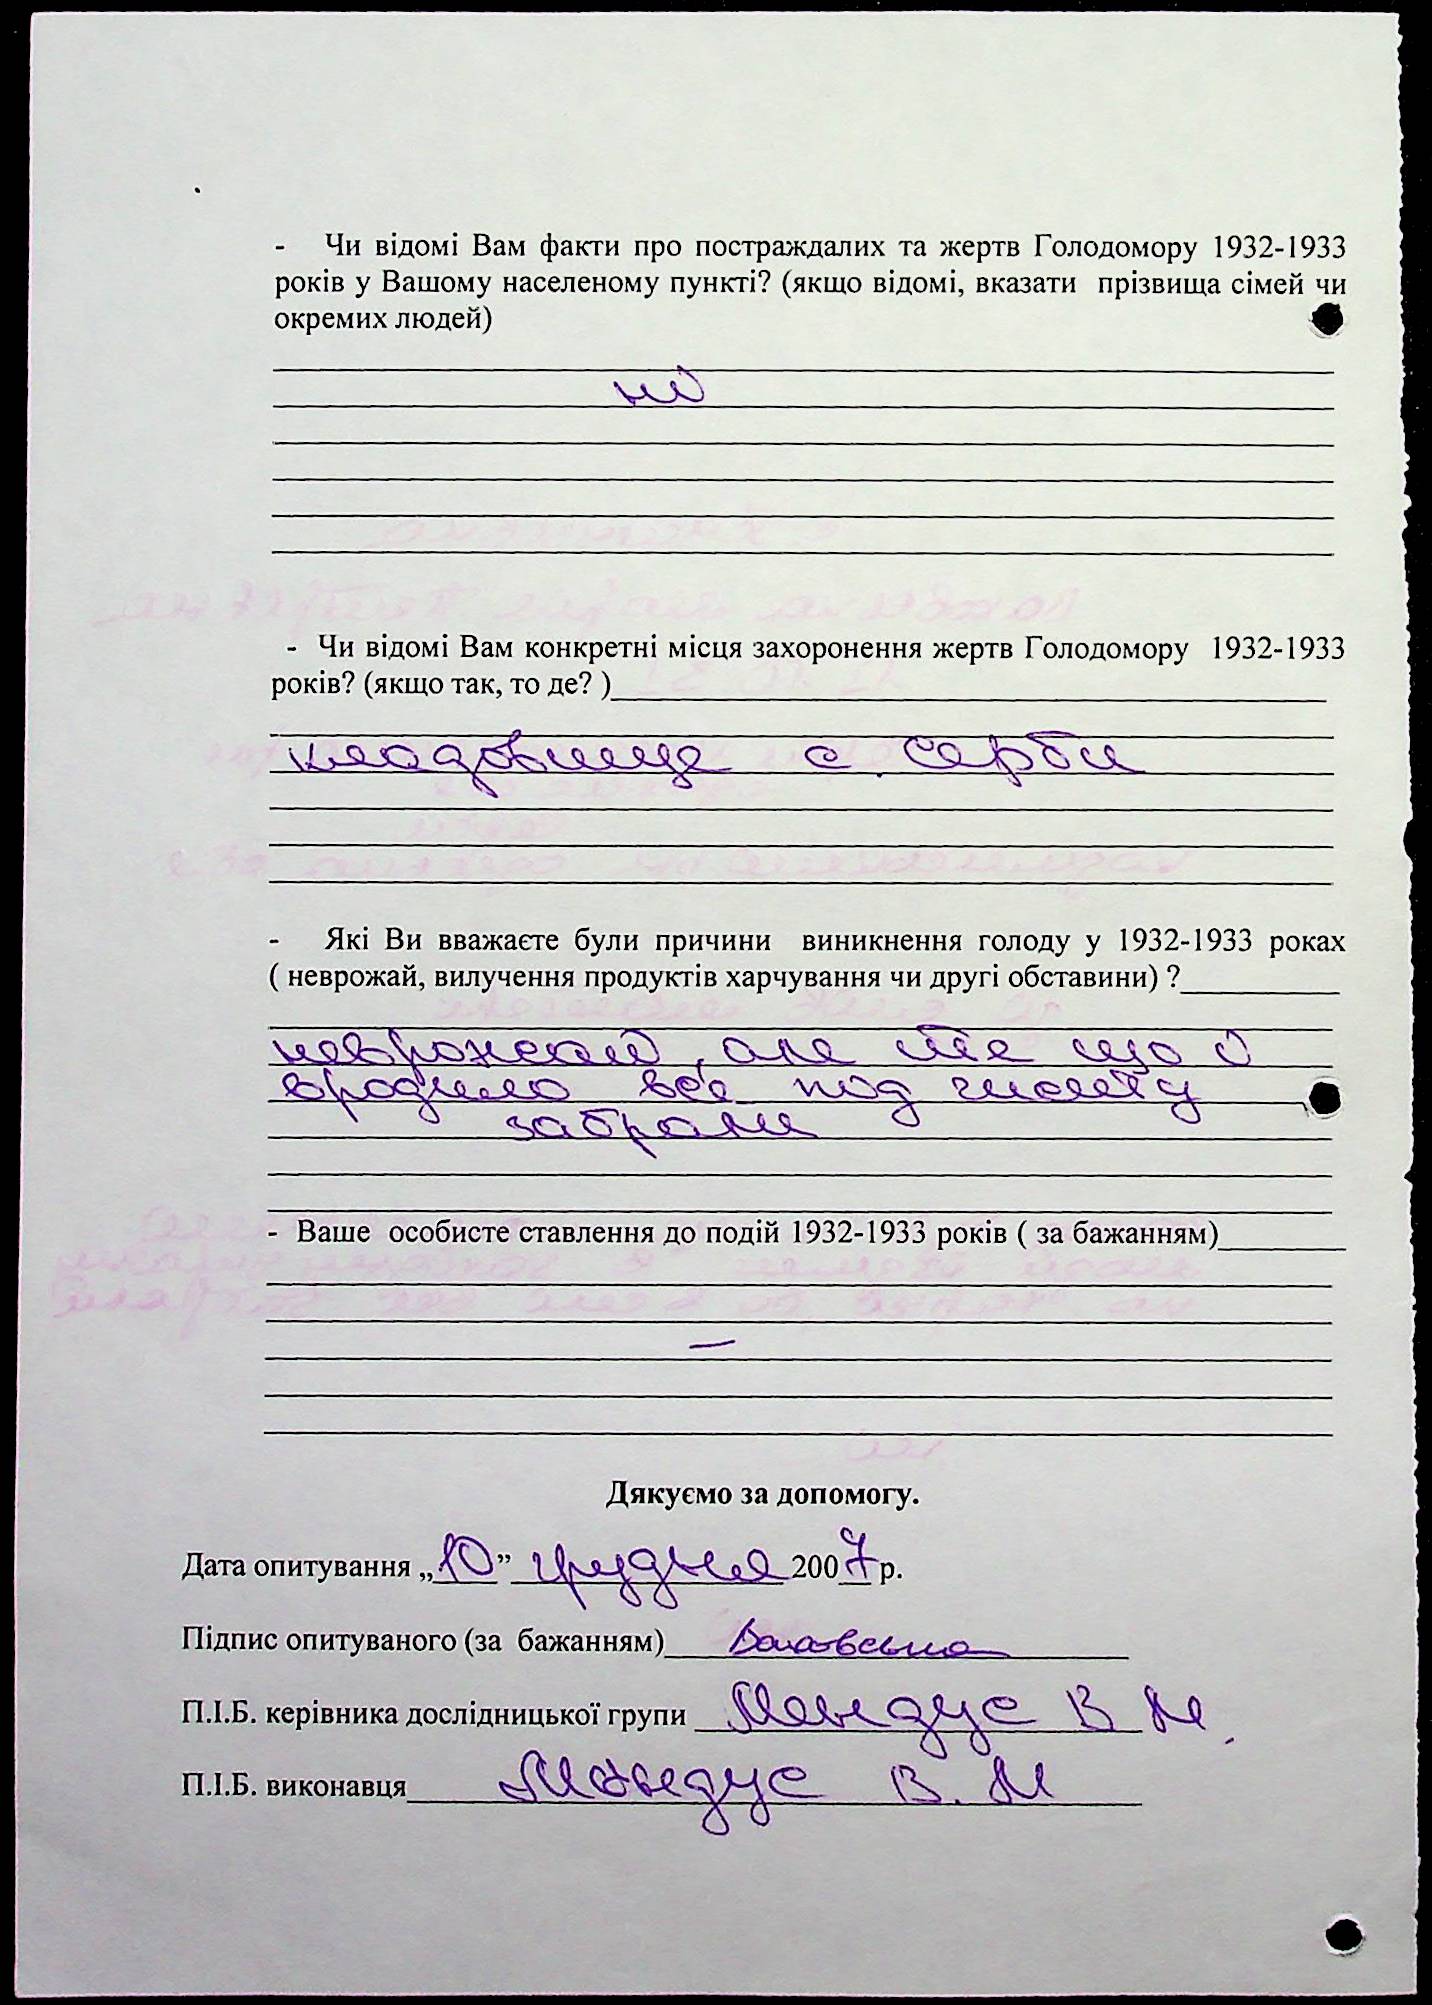 - Чи відомі Вам факти про постраждалих та жертв Голодомору 1932-1933
років у Вашому населеному пункті? (якщо відомі, вказати прізвища сімей чи
окремих людей)
ні
- Чи відомі Вам конкретні місця захоронення жертв Голодомору 1932-1933
років? (якщо так, то де? )
кладовище с. Серби
- Які Ви вважаєте були причини виникнення голоду у 1932-1933 роках
( неврожай, вилучення продуктів харчування чи другі обставини) ?
неврожай, але те що й
вродило все під чисту
забрали
- Ваше особисте ставлення до подій 1932-1933 років ( за бажанням)
–
Дякуємо за допомогу.
Дата опитування „10” грудня 2007 р.
Підпис опитуваного (за бажанням)
П.І.Б. керівника дослідницької групи Мандус В М.
П.І.Б. виконавця Мандус В. М